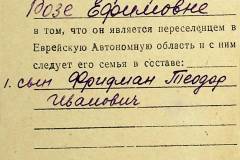 Розе Ефимовне
в том, что он является переселенцем в
Еврейскую Автономную область и с ним
следует его семья в составе:
1. сын Фридман Теодор
Иванович